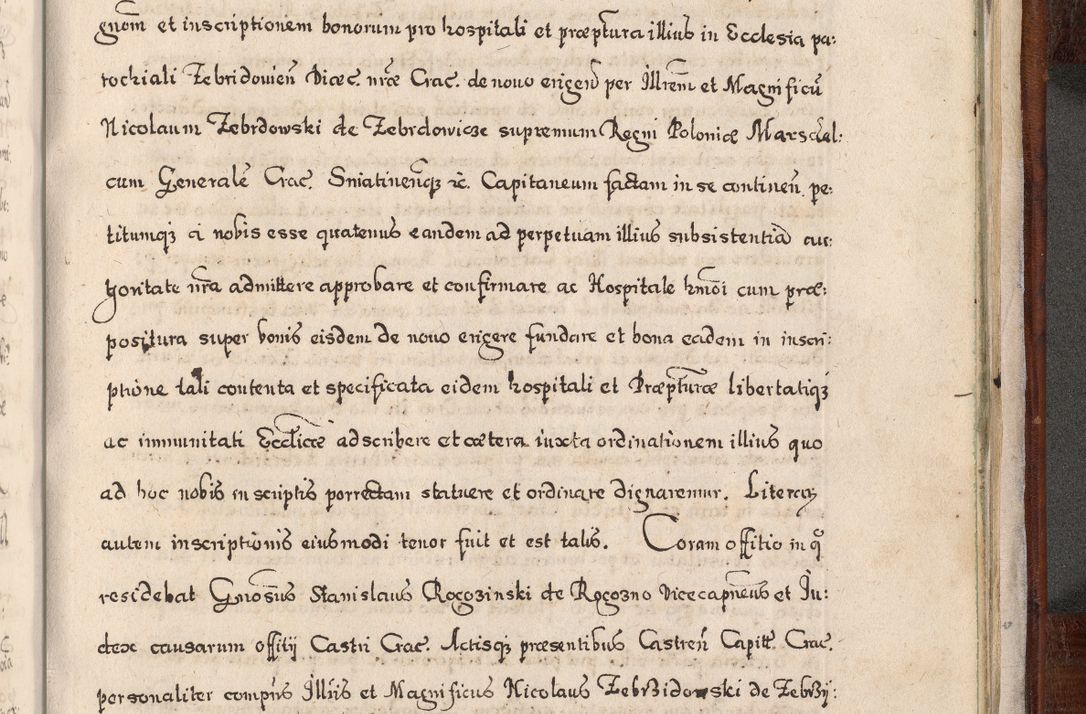 gnom̃ et inscriptionem bonorum pro hospitali et præpt̃ura illius in Ecclesia pa:
rochiali Zebridovień Diæc. nræ̃ Crac. de novo erigeñ per Illrem̃ et Magnificũ
Nicolaum Zebrdowski de Zebrdowicze supremum Regni Poloniæ Marschal:
cum Generalẽ Crac. Sniatinenc̃qȝ ꝛc. Capitaneum factam in se contineñ. pe:
titumqȝ a nobis esse quatenus eandem ad perpetuam illius subsistentiã au:
thoritate nrã admittere approbare et confirmare ac Hospitale hm̃oi cum præ:
positura super bonis eisdem de novo erigere fundare et bona eadem in inscri:
ptione tali contenta et specificata eidem hospitali et Præpt̃uræ libertatiqȝ
ac immunitati Eccl̃icæ adscribere et cætera iuxta ordinationem illius quo
ad hoc nobis in scriptis porrectam statuere et ordinare dignaremur. Literaꝝ
autem inscriptionis eiusmodi tenor fuit et est talis. Coram offitio in q̃
residebat Gnõsus Stanislaus Rogozinski de Rogozno Vicecapneũs et Iu:
dex causarum offitij Castri Crac. Actisqȝ præsentibus Castreñ Capitt̃. Crac.
personaliter compñs Illr̃is et Magnificus Nicolaus Zebrzidowski de Zebrzÿ: